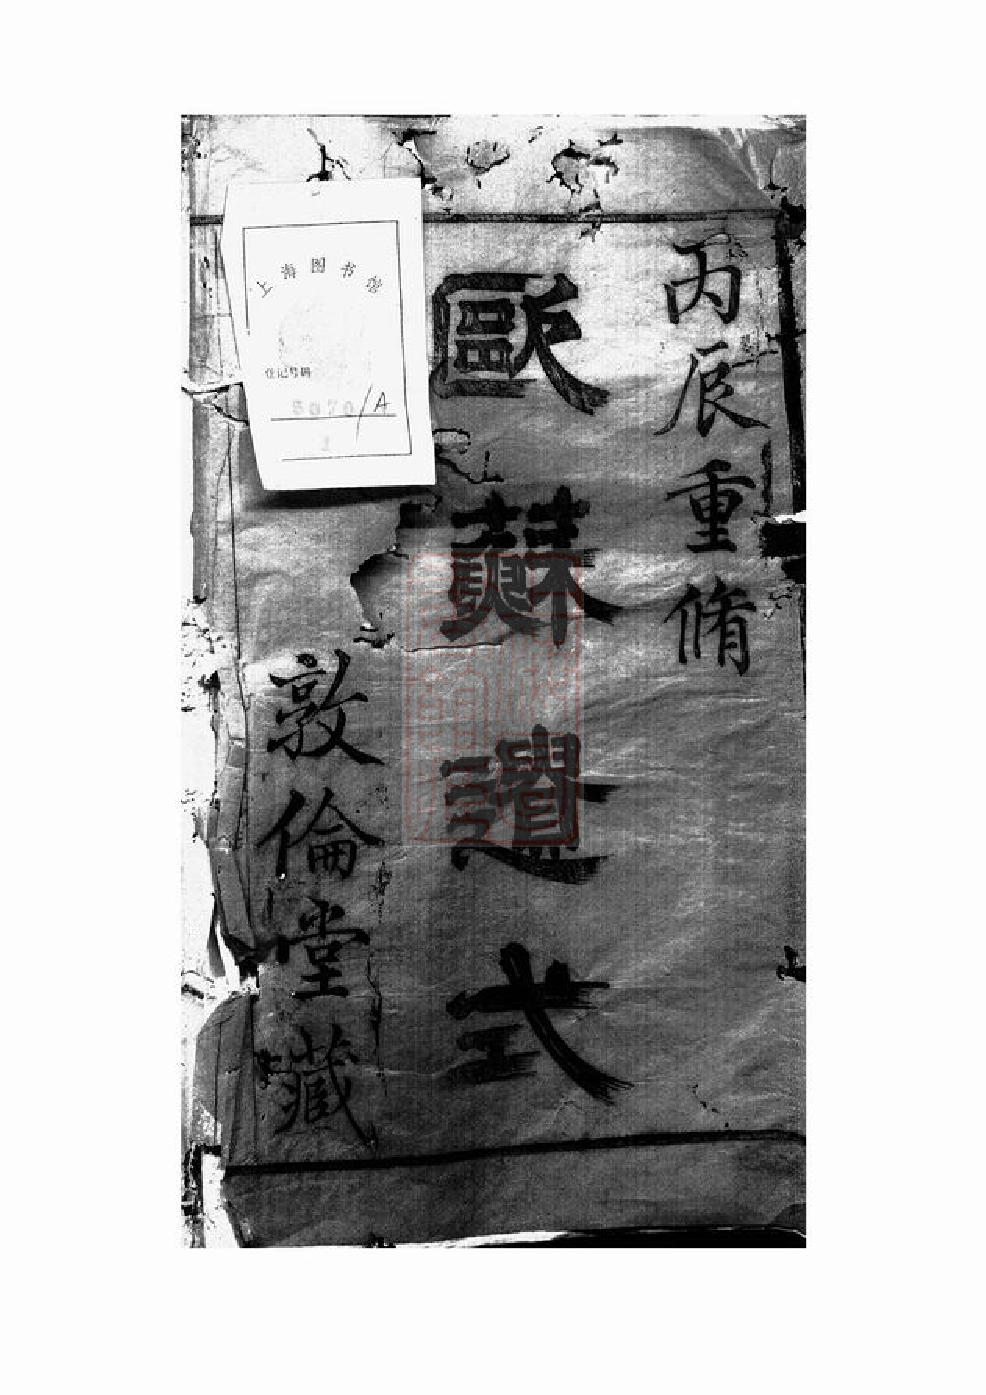 丙辰重脩
歐蘇遺式
敦倫堂藏
上海图书馆
登记号码
5070/A
1